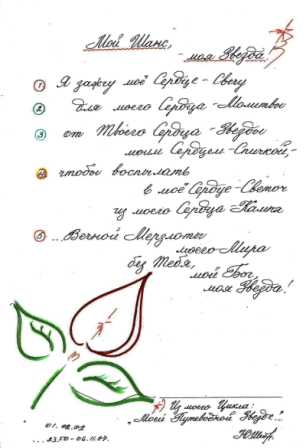 Мой Шанс,
моя Звезда!
① Я зажгу моё Сердце-Свечу
② для моего Сердца-Молитвы
③ от Твоего Сердца-Звезды
моим Сердцем-Спичкой,-
④ чтобы воспылать
в моё Сердце-Светоч
из моего Сердца-Камня
⑤ ...Вечной Мерзлоты
моего Мира
без Тебя,
мой Бог,
моя Звезда!
*) Из моего Цикла:
"Моей Путеводной Звезде"...
01.02.02